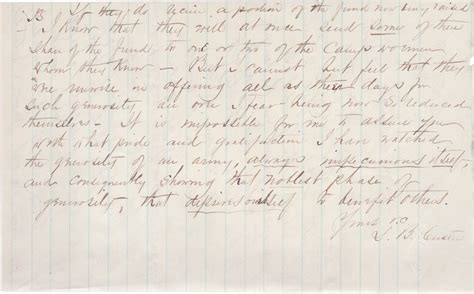 13 If they do again a portion of the fund now being raised
I know that they will at once send some of their
share of the fund to one or two of the camp women
whom they know – But I cannot but feel that they
are unwise in offering aid as their days for
such generosity are over I fear being now so reduced
themselves – It is impossible for me to assure you
with what pride and gratification I have watched
the generosity of an army, always impecunious itself,
and consequently showing that noblest phase of
generosity, that deprives oneself to benefit others.
Yours
B. Custer